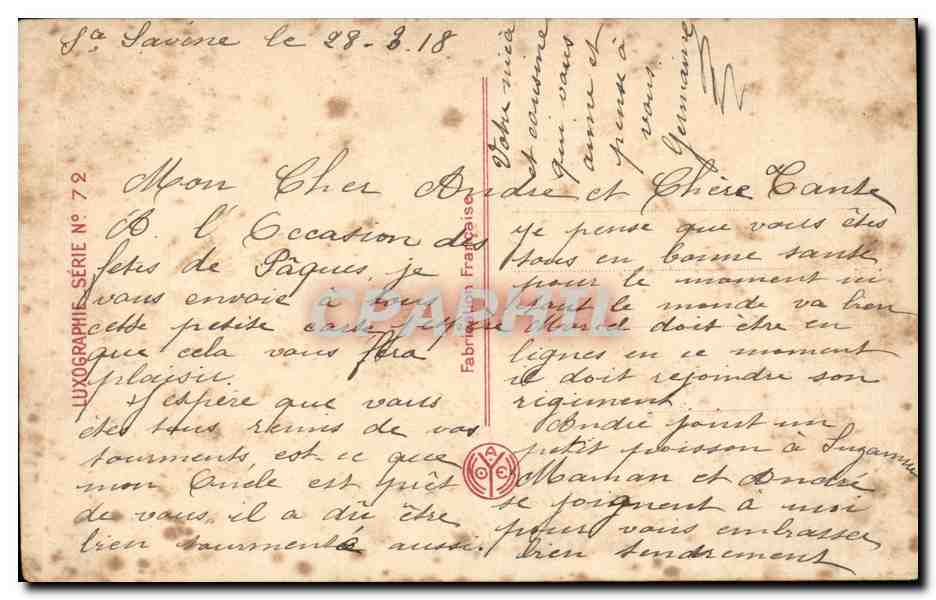 Ste Savine le 28-3.18
Mon Cher André et Chère Tante
A l'Occasion des
fetes de Pâques, je
vous envoie à vous
cette petite carte j'éspère
que cela vous fera
plaisir.
J'espère que vous
êtes tous remis de vos
tourments est-ce que
mon Oncle est prêt
de vous, il a dû être
bien tourmenté aussi.
je pense que vous êtes
tous en bonne santé
pour le moment ici
tout le monde va bien
doit être en
lignes en ce moment
il doit rejoindre son
rigiment
André joint un
petit poisson à Suzanne
Maman et André
se joignent à moi
pour vous embrasser
bien tendrement
Votre nièce
et cousine
qui vous
aime et
pense à
vous.
Germaine
LUXOGRAPHIE SÉRIE N° 72
Fabrication Française
CPAPHIL